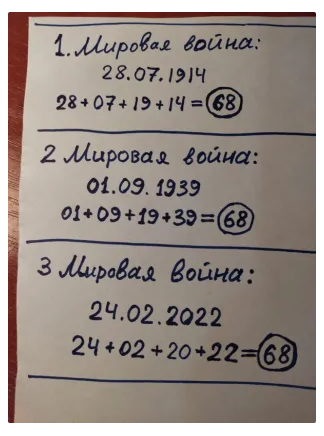 1. Мировая война:
28.07.1914
28+07+19+14=68
2 Мировая война:
01.09.1939
01+09+19+39=68
3 Мировая война:
24.02.2022
24+02+20+22=68